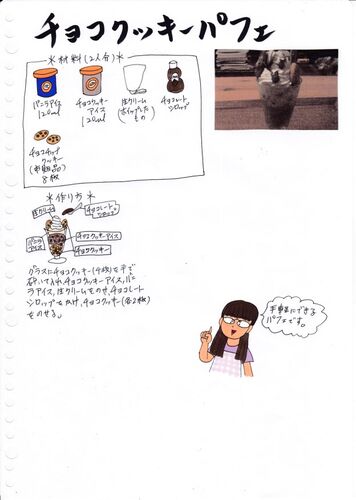 チョコクッキーパフェ
＊材料(2人分)＊
バニラアイス
120ml
チョコクッキー
アイス
120ml
生クリーム
(ホイップした
もの)
チョコレート
シロップ
チョコチップ
クッキー
(市販品)
8枚
＊作り方＊
生クリーム
チョコレート
シロップ
バニラ
アイス
チョコクッキーアイス
チョコクッキー
グラスにチョコクッキー(4枚)を手で
砕いて入れ、チョコクッキーアイス、バニ
ラアイス、生クリームをのせ、チョコレート
シロップをかけ、チョコクッキー(各2枚)
をのせる。
手軽にできる
パフェです。